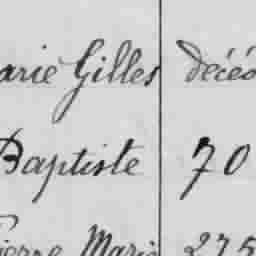 arie Gilles décéd
Baptiste 70
Pierre Marie 275